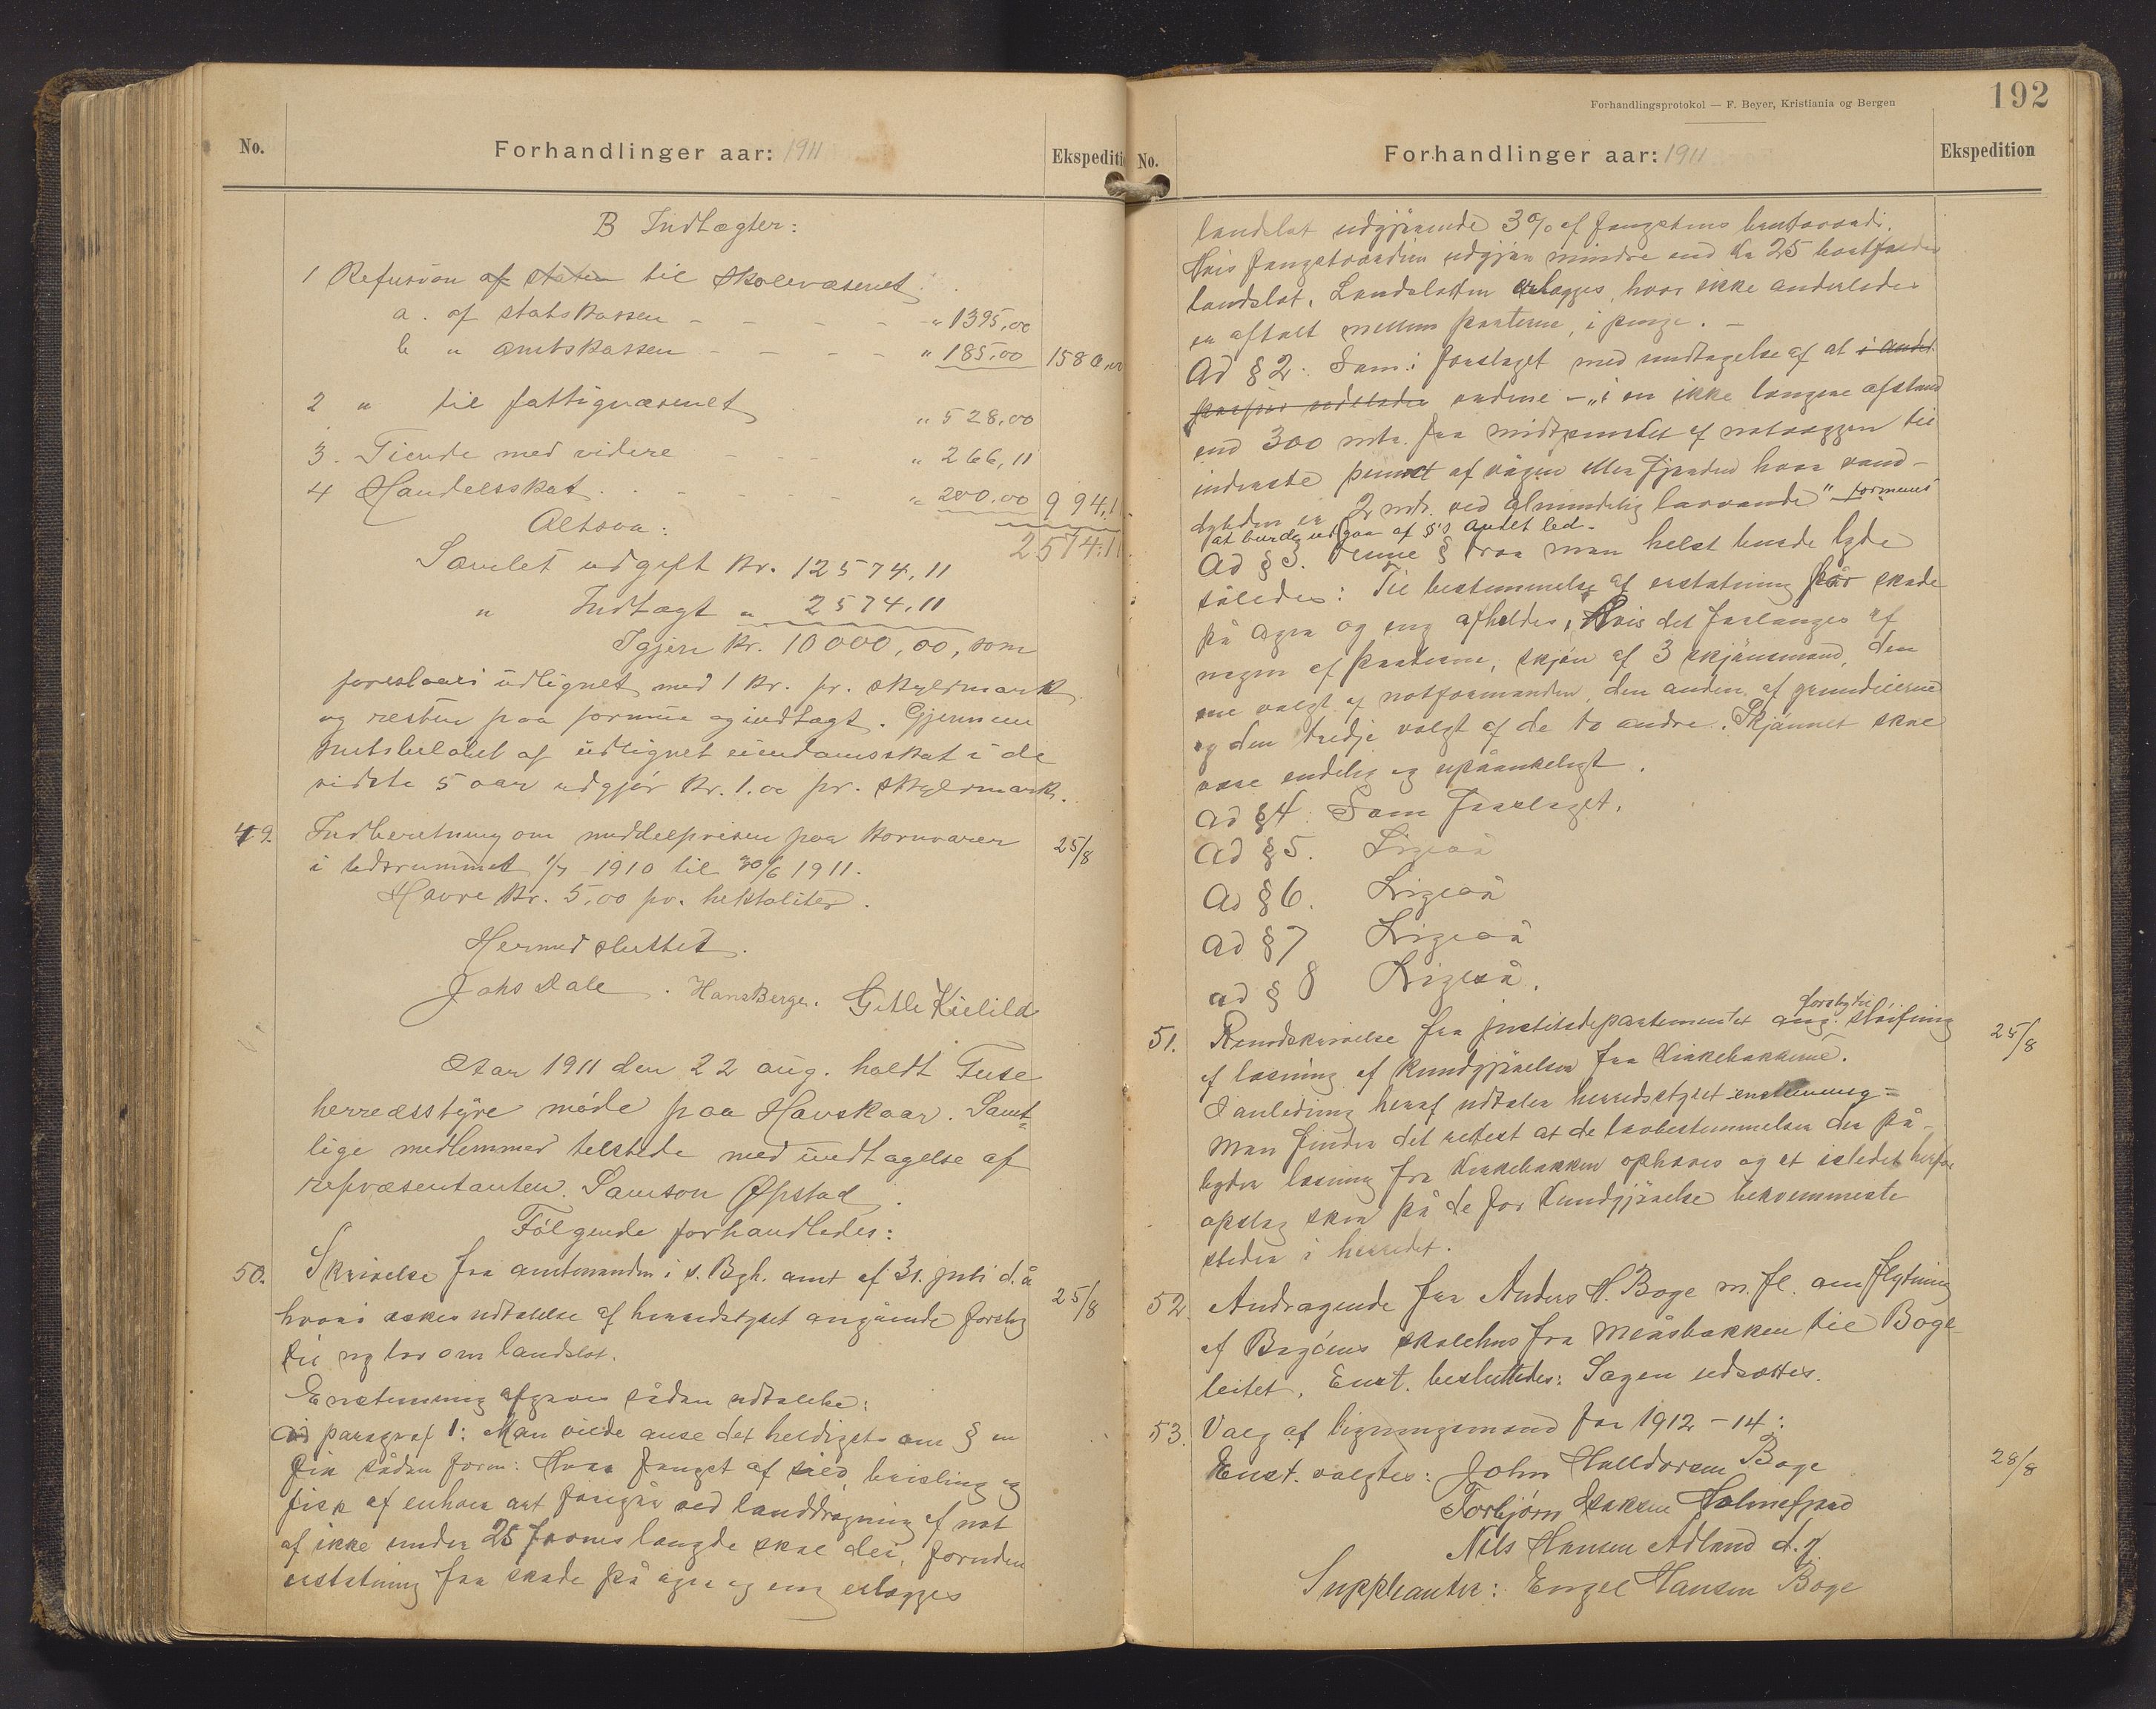 No.
Forhandlinger aar: 1911
Ekspediti
B Indtægter:
1 Refusion af staten til skolevæsenet:
a. af statskassen - - - - " 1395,00
b " amtskassen - - - - " 185,00 1580,00
2 " til fattigvæsenet " 528,00
3. Tiende med videre - - - " 266,11
4 Handelsskat. - - - - " 200.00 994,11
Altsaa: 2574.11
Samlet udgift kr. 12574,11
" Indtægt " 2574,11
Igjen kr. 10000,00, som
foreslaaes udlignet med 1 kr. pr. skyldmark
og resten paa formue og indtægt. Gjennem
snitsbeløbet af udlignet eiendomsskat i de
sidste 5 aar udgjør kr. 1.00 pr. skyldmark.
49. Indberetning om middelprisen paa kornvarer 25/8
i tidsrummet 1/7 1910 til 30/6 1911.
Havre kr. 5,00 pr. hektoliter.
Hermed sluttet.
Johs Dale. Hans Berge. Gitle Kielild
Aar 1911 den 22 aug. holdt Fuse
herredsstyre møde paa Havskaar. Samt=
lige medlemmer tilstede med undtagelse af
repræsentanten Samson Øpstad.
Følgende forhandledes:
50. Skrivelse fra amtmanden i s. Bgh. amt af 31. juli d. å 25/8
hvori æskes udtalelse af herredstyret angående forslag
til ny lov om landslot.
Enstemmig afgaves sådan udtalelse:
Ad paragraf 1: Man vilde anse det heldigst om § en
fik sådan form: Hvor fangst af sild, brisling og
fisk af enhver art foregår ved landdragning af not
af ikke under 25 favnes længde skal der, foruden
erstatning for skade på ager og eng erlægges
Forhandlingsprotokol — F. Beyer, Kristiania og Bergen
192
No.
Forhandlinger aar: 1911
Ekspedition
landslot udgjørende 3% af fangstens bruttoværdi.
Hvis fangstværdien udgjør mindre end Kr 25 bortfalder
landslot. Landslotten erlægges, hvor ikke anderledes
er aftalt mellem parterne, i penge. -
Ad § 2. Som i forslaget med undtagelse af at i andet
ordene - "i en ikke længere afstand
end 300 mtr. fra midtpunktet af notvæggen til
inderste punkt af vågen eller fjorden hvor vand-
dybden er 2 mtr. ved almindelig lavvande" formenes
at burde udgaa af §'s andet led.
Ad § 3. Denne § tror man helst burde lyde
således: Til bestemmelse af erstatning for skade
på ager og eng afholdes, hvis det forlanges af
nogen af parterne, skjøn af 3 skjønsmænd, den
ene valgt af notformanden, den anden af grundeierne
og den tredje valgt af de to andre. Skjønnet skal
være endelig og upåankeligt.
Ad § 4. Som forslaget.
Ad § 5. Ligeså
Ad § 6. Ligeså
Ad § 7 Ligeså
ad § 8 Ligeså.
51. Rundskrivelse fra justitsdepartementet ang. forslag til sløifning 25/8
af læsning af kundgjørelser fra kirkebakkene.
I anledning heraf udtaler herredstyret enstemmig =
Man finder det rettest at de lovbestemmelser der på-
byder læsning fra kirkebakken ophæves og at istedet herfor
opslag sker på de for kundgjørelse bekvemmeste
steder i herredet.
52. Andragende fra Anders H. Boge m. fl. om flytning
af Bogøens skolehus fra Meåsbakken til Boge
leitet. Enst. besluttedes: Sagen udsættes.
53. Valg af ligningsmænd for 1912-14:
Enst. valgtes: John Halldorsen Boge 28/8
Torbjørn Isaksen Holmefjord
Nils Hansen Adland d.y.
Suppleanter: Engel Hansen Boge